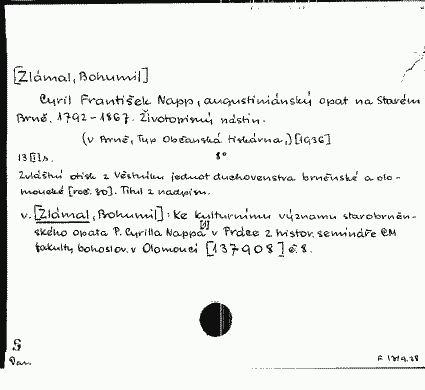 [Zlámal, Bohumil]
Cyril František Napp, augustiniánský opat na Starém
Brně. 1792-1867. Životopisný nástin.
(v Brně, Typ Občanská tiskárna,) [1936]
13 [1] s. 8°
Zvláštní otisk z Věstníku jednot duchovenstva brněnské a olo-
moucké [roč. 70]. Titul z nadpisu.
v. [Zlámal, Bohumil]: Ke kulturnímu významu starobrněn-
ského opata P. Cyrilla Nappa [!] v Práce z histor. semináře CM
fakulty bohoslov. v Olomouci [137908] č. 8.
S
Dar.